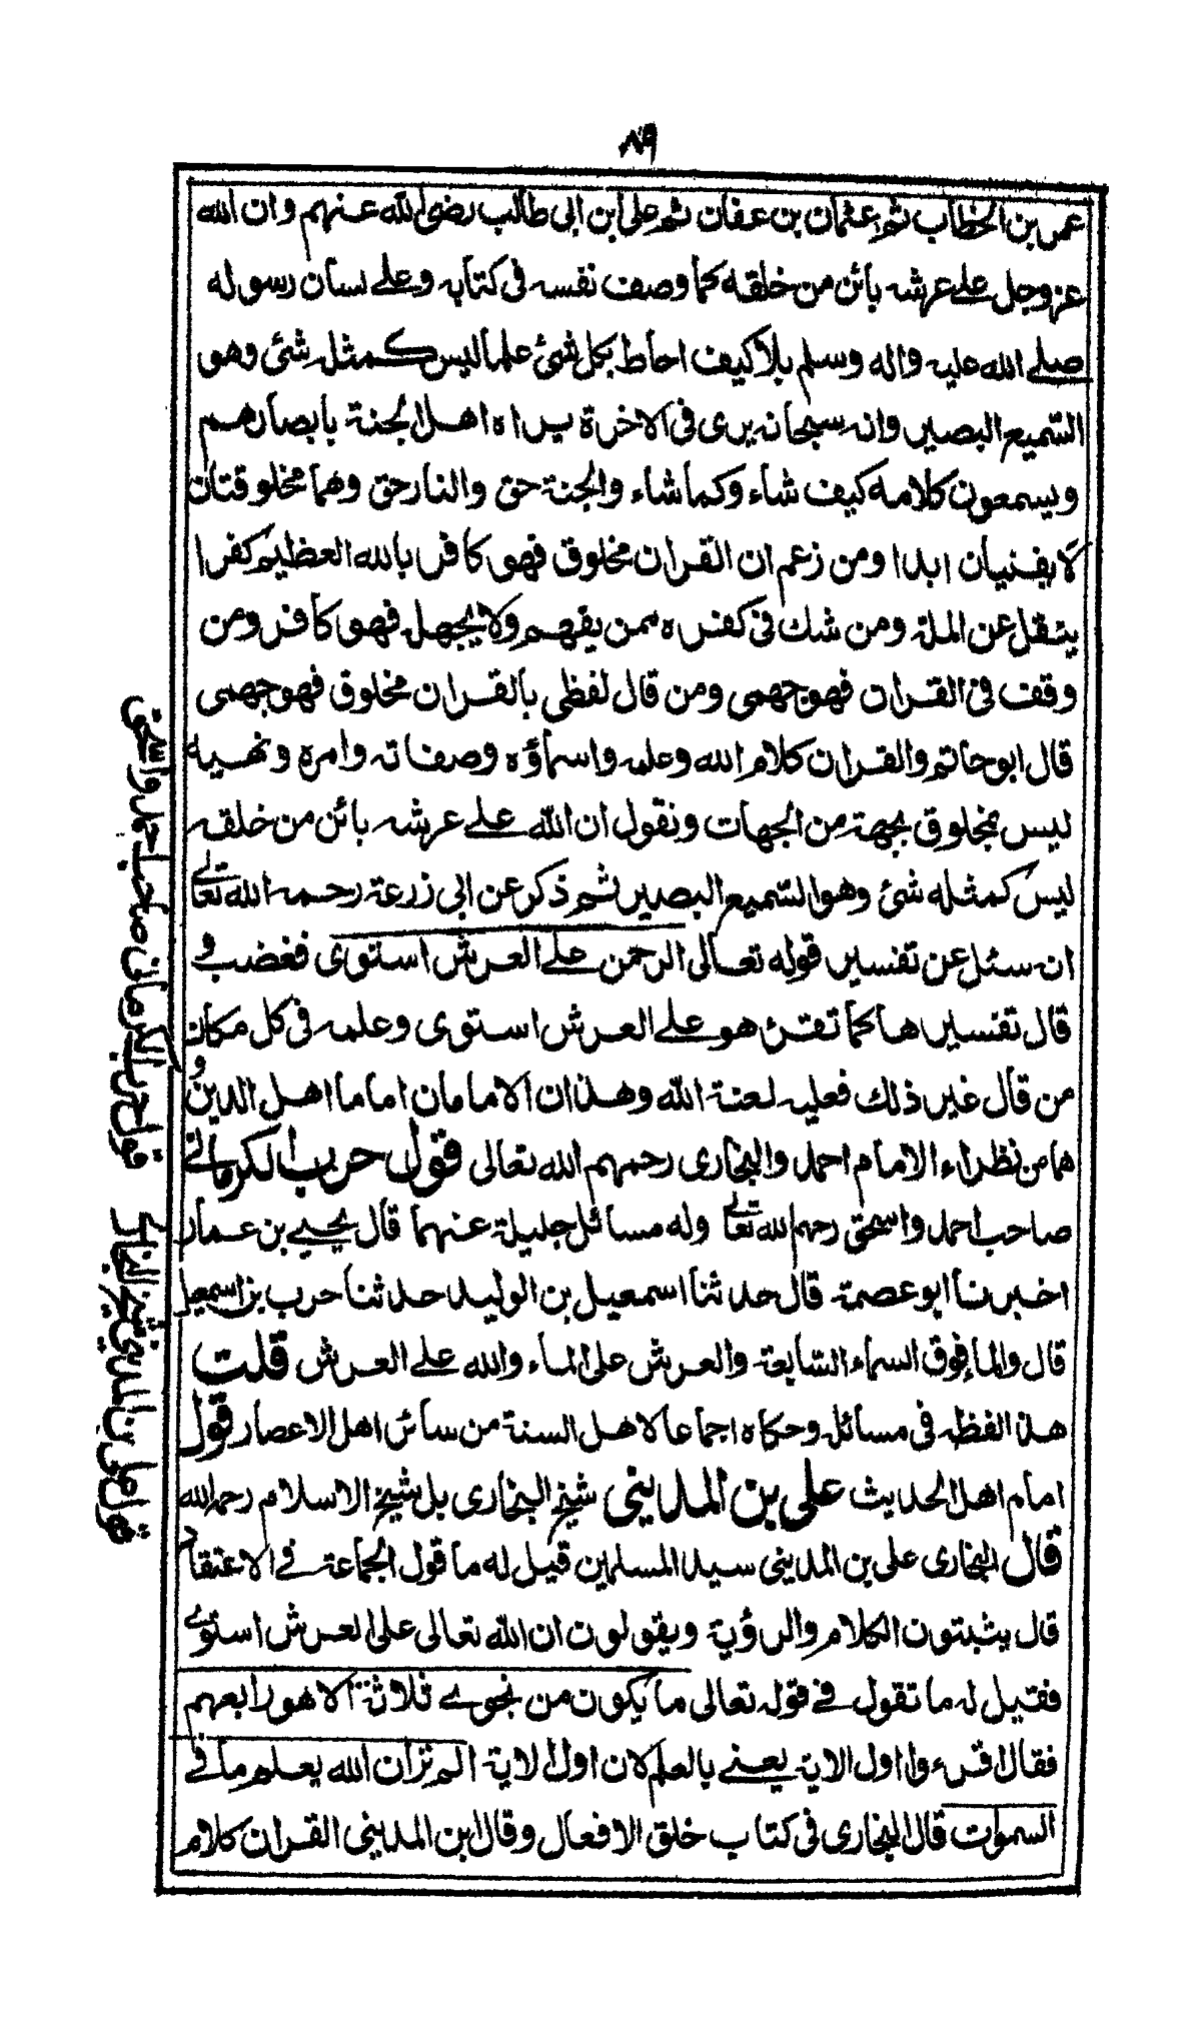 ٨٩
عمر بن الخطاب ثم عثمان بن عفان ثم علي ابن ابى طالب رضى الله عنهم وان الله
عز وجل على عرشه بائن من خلقه كما وصف نفسه فى كتابه وعلے لسان رسوله
صلے الله عليه واله وسلم بلا كيف احاط بكل شئ علما ليس كمثله شئ وهو
السميع البصير وانه سبحانه يرى فى الاخرة يراه اهل الجنة بابصارهم
ويسمعون كلامه كيف شاء وكما شاء والجنة حق والنار حق وهما مخلوقتان
لا يفنيان ابدا ومن زعم ان القران مخلوق فهو كافر بالله العظيم كفرا
ينقل عن الملة ومن شك فى كفره ممن يفهم ولا يجهل فهو كافر ومن
وقف فى القران فهو جهمى ومن قال لفظى بالقران مخلوق فهو جهمى
قال ابو حاتم والقران كلام الله وعلمه واسماؤه وصفاته وامره ونهيه
ليس بمخلوق بجهة من الجهات ونقول ان الله علے عرشه بائن من خلقه
ليس كمثله شئ وهو السميع البصير ثم ذكر عن ابى زرعة رحمه الله تعالے
انه سئل عن تفسير قوله تعالى الرحمن علے العرش استوى فغضب و
قال تفسيرها كما تقرئ هو علے العرش استوى وعلمه فى كل مكان
من قال غير ذلك فعليه لعنة الله وهذان الامامان اماما اهل الدين و
هما من نظراء الامام احمد والبخارى رحمهم الله تعالى قول حرب الكرمانے
صاحب احمد واسحق رحمهم الله تعالے وله مسائل جليلة عنهما قال يحيے بن عمار
اخبرنا ابو عصمة قال حدثنا اسمعيل بن الوليد حدثنا حرب بن اسمعيل
قال والماء فوق السماء السابعة والعرش على الماء والله علے العرش قلت
هذا لفظه فى مسائله وحكاه اجماعا لاهل السنة من سائر اهل الاعصار قول
امام اهل الحديث على بن المدينى شيخ البخارى بل شيخ الاسلام رحمه الله
قال البخارى على بن المدينى سيد المسلمين قيل له ما قول الجماعة فے الاعتقاد
قال يثبتون الكلام والرؤية ويقولون ان الله تعالى على العرش استوے
فقيل له ما تقول فے قوله تعالى ما يكون من نجوے ثلاثة الا هو رابعهم
فقال اقرءوا اول الاية يعنے بالعلم لان اول الاية الم تر ان الله يعلم ما فے
السموات قال البخارى فى كتاب خلق الافعال وقال ابن المدينى القران كلام
قول حرب الكرمانى صاحب احمد واسحق
قول على بن المدينى شيخ البخارى